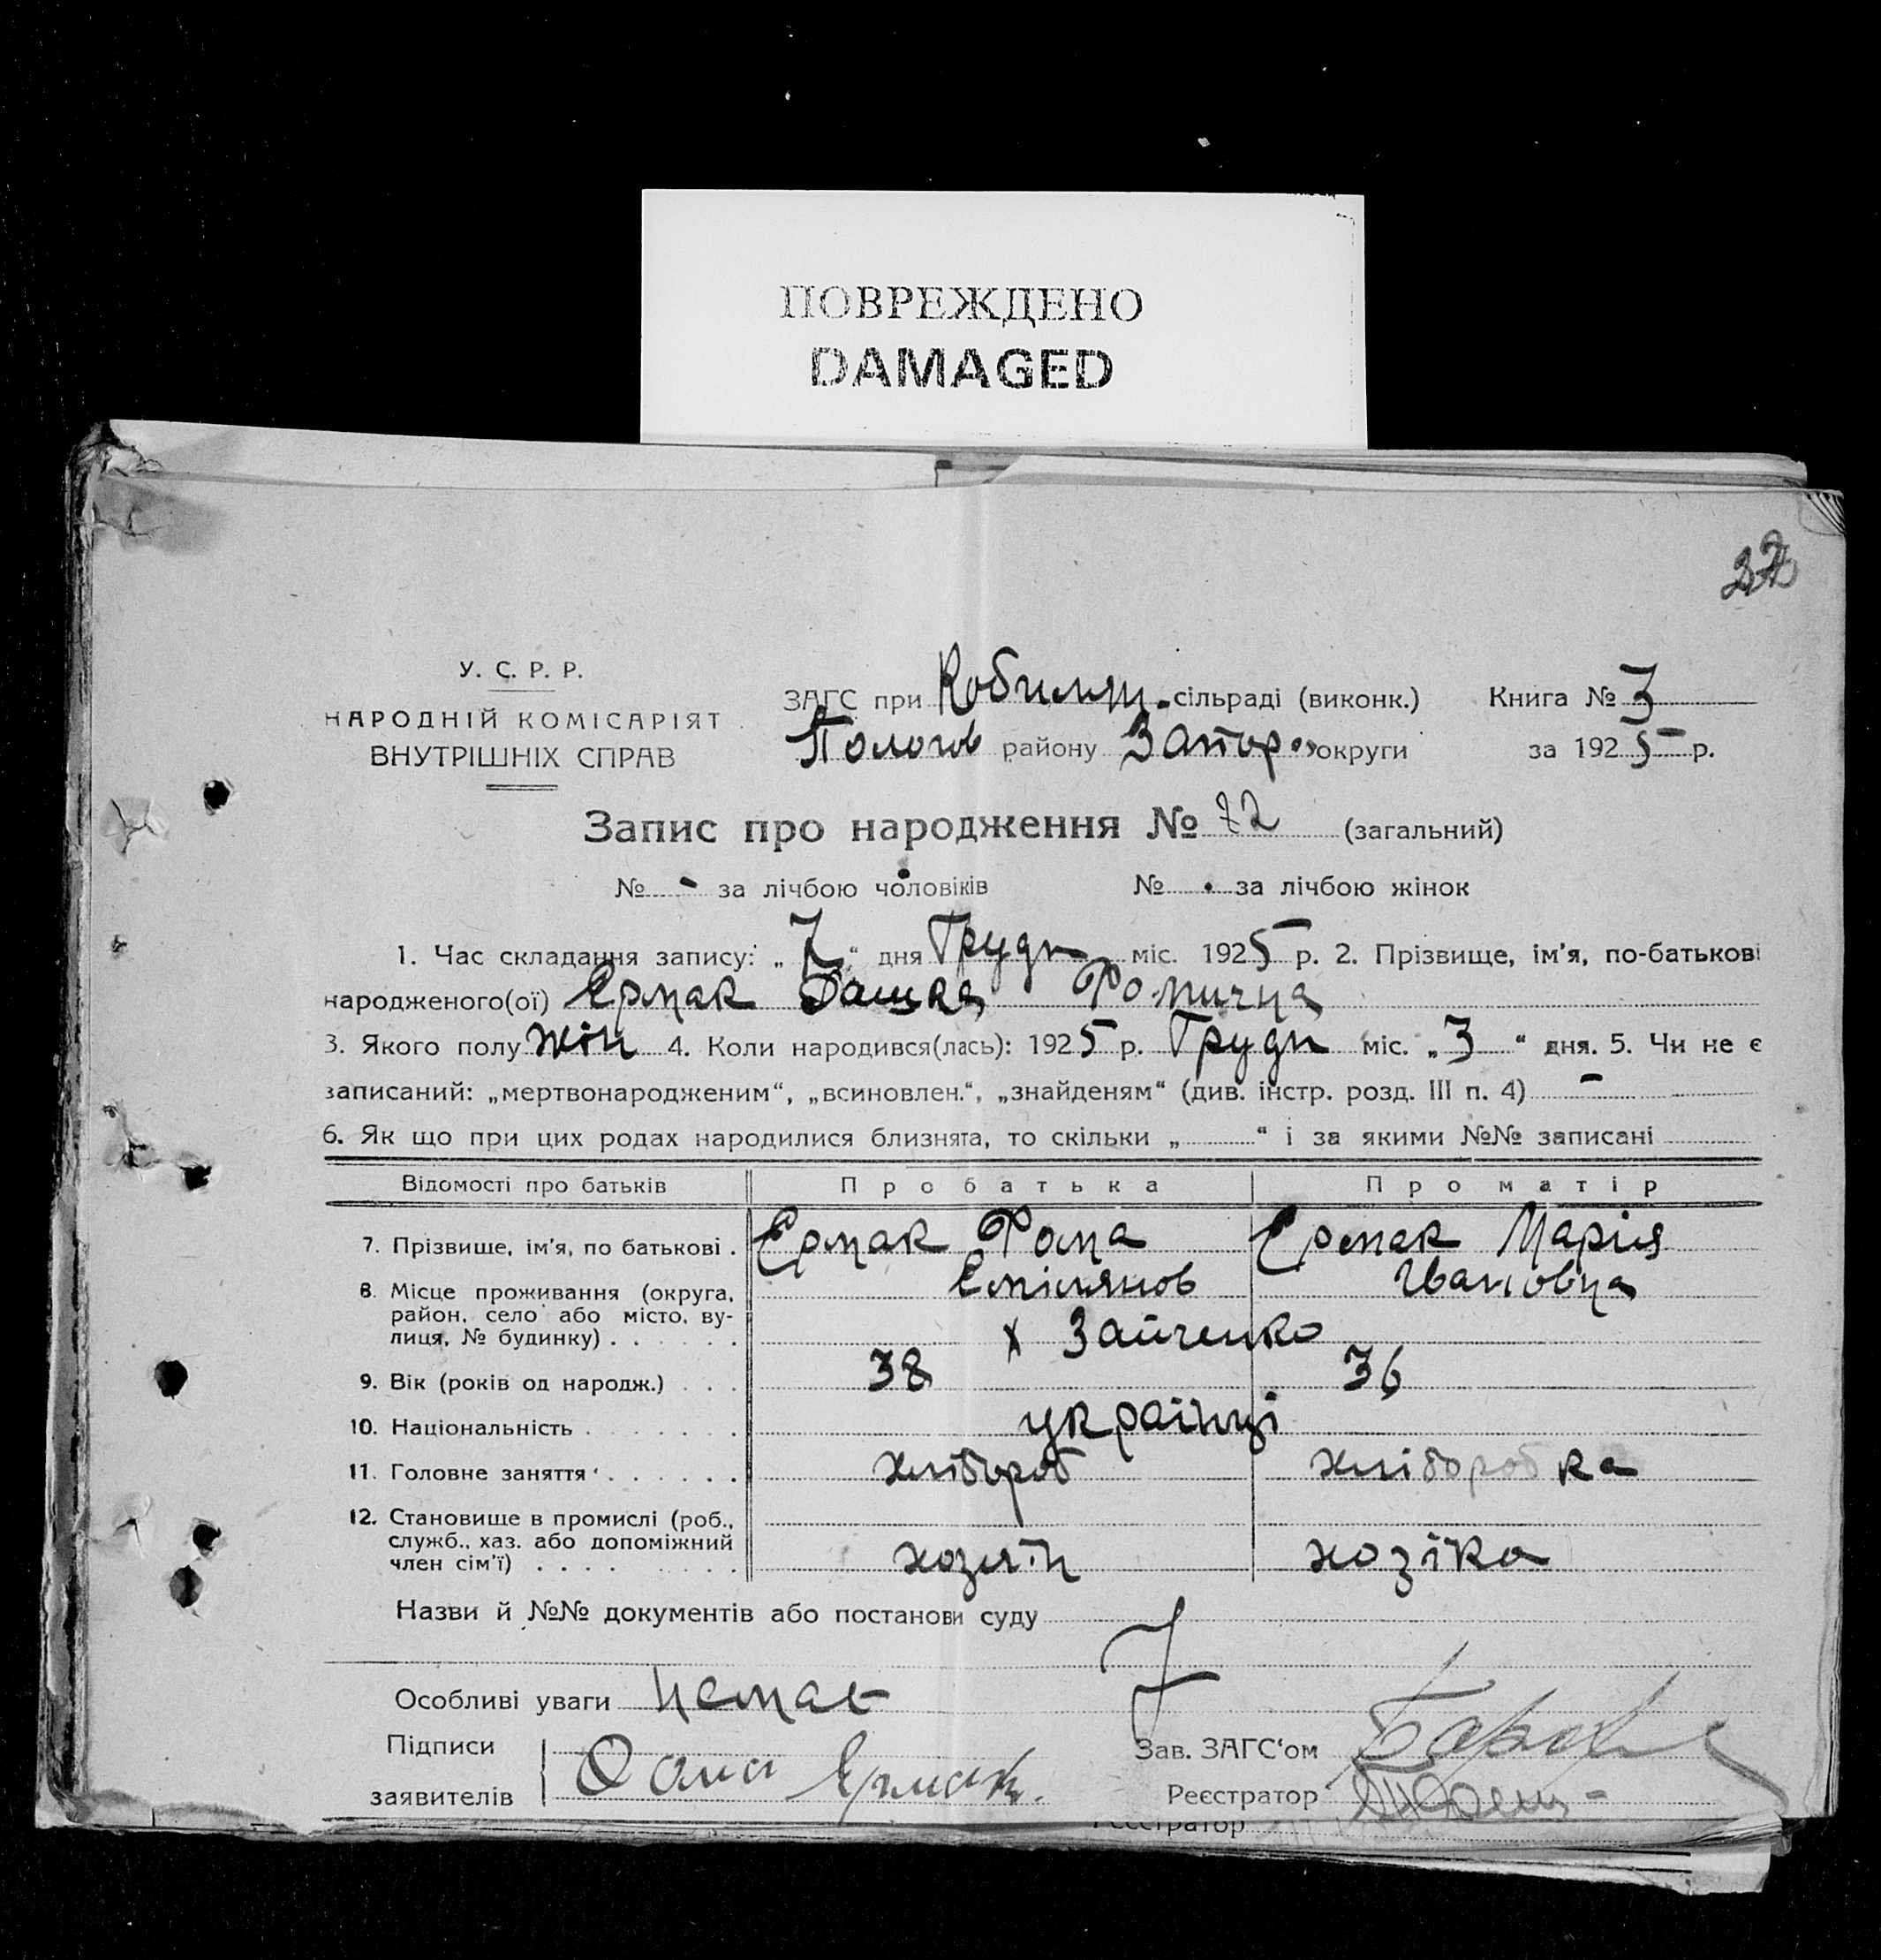 ПОВРЕЖДЕНО
DAMAGED
У. С. Р. Р.
НАРОДНІЙ КОМІСАРІЯТ
ВНУТРІШНІХ СПРАВ
ЗАГС при Кобиляц. сільраді (виконк.) Книга № 3
Пологов району Запор. округи за 1925 р.
Запис про народження № 72 (загальний)
№ - за лічбою чоловіків № - за лічбою жінок
1. Час складання запису: „7“ дня Грудн міс. 1925 р. 2. Прізвище, ім'я, по-батькові
народженого(ої) Ермак Дашка Фомична
3. Якого полу жін 4. Коли народився(лась): 1925 р. Грудн міс. „3“ дня. 5. Чи не є
записаний: „мертвонародженим“, „всиновлен.“, „знайденям“ (див. інстр. розд. III п. 4) -
6. Як що при цих родах народилися близнята, то скільки „ “ і за якими №№ записані
Відомості про батьків Про батька Про матір
7. Прізвище, ім'я, по батькові . Ермак Фома Ермак Марія
Емілянов Івановна
8. Місце проживання (округа,
район, село або місто, ву-
лиця, № будинку) . . . . х Зайченко
9. Вік (років од народж.) . . . 38 36
10. Національність . . . . . . . українці
11. Головне заняття . . . . . . хлібороб хліборобка
12. Становище в промислі (роб.,
служб., хаз. або допоміжний
член сім'ї) . . . . . . . . . хозяїн хозіка
Назви й №№ документів або постанови суду
Особливі уваги немає
Підписи
заявителів Фома Ермак.
Зав. ЗАГС'ом
Реєстратор
Реєстратор